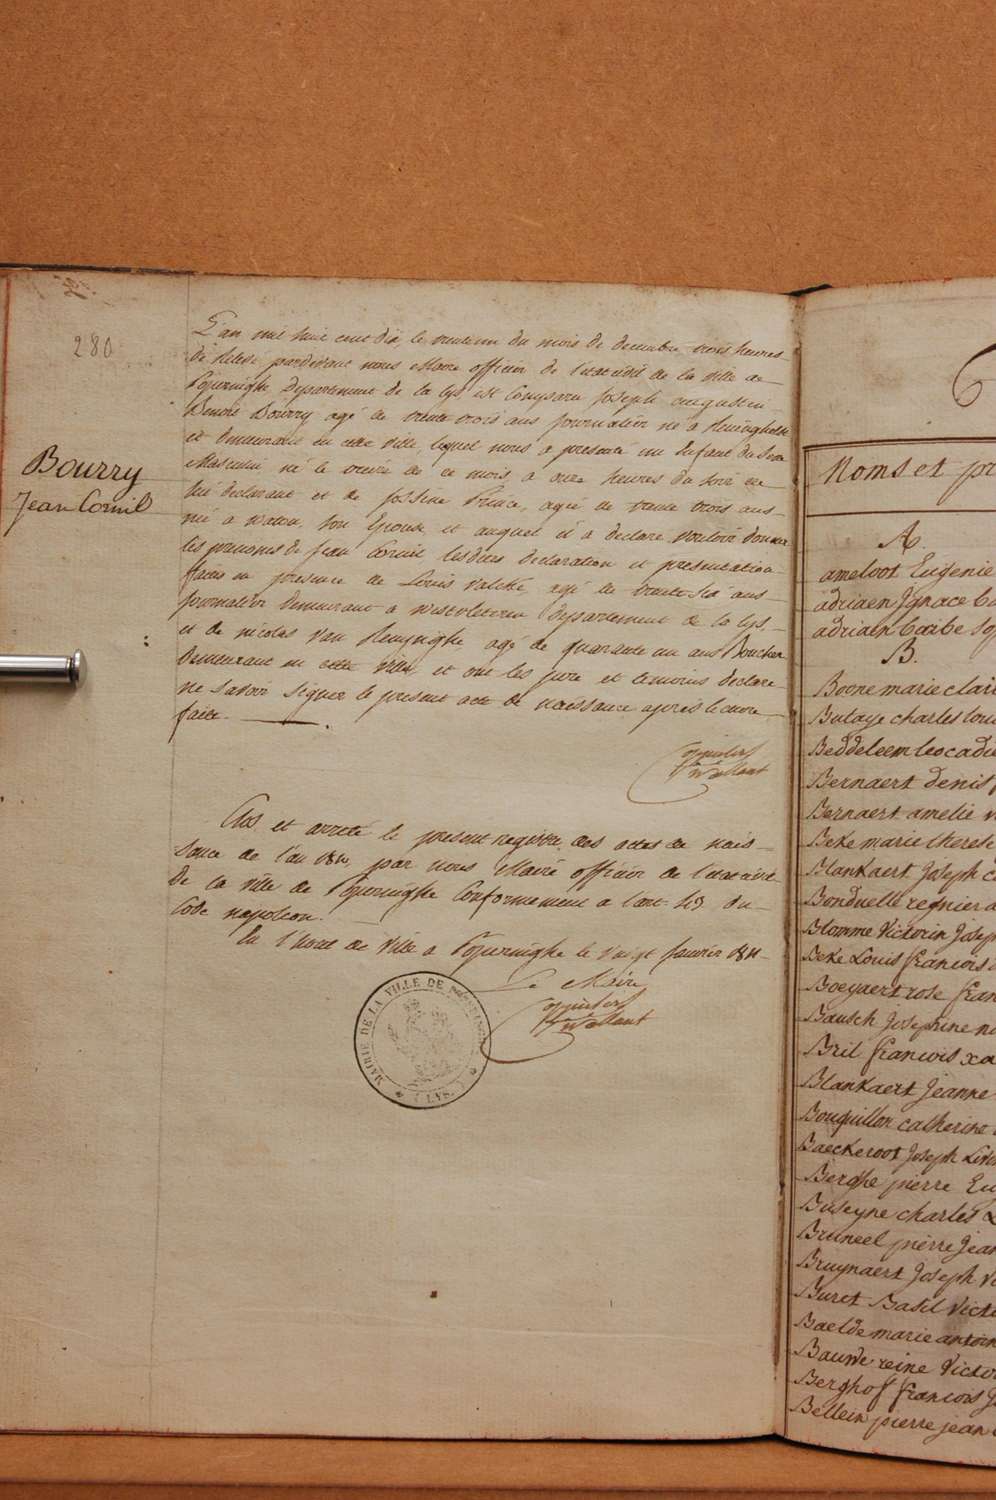 280
Bourry
Jean Cornil
L'an mil huit cent dix, le trente un du mois de decembre trois heures
de relevé pardevant nous Maire officier de l'etat civil de la ville de
Poperinghe Departement de la Lys est Comparu Joseph augustin
Benoit Bourry agé de trente trois ans journalier né a Reninghelst
et demeurant en cette ville, lequel nous a presenté un Enfant du Sexe
Masculin né le trente de ce mois, a onze heures du soir de
lui declarant et de Prince, agée de trente trois ans
née a watou, son Epouse, et auquel il a declaré vouloir donner
les prenoms de jean Cornil lesdites declaration et presentation
faites en presence de Louis agé de trente six ans
journalier demeurant a westvleteren Departement de la Lys,
et de nicolas Van Renynghe agé de quarante un ans Boucher
demeurant en cette ville, et ont les pere et temoins declaré
ne Savoir Signer le present acte de naissance apres lecture
faite.
Clos et arreté le present registre des actes de nais-
sance de l'an 1810, par nous Maire officier de l'etat civil
de la ville de Poperinghe Conformement a l'art 43 du
Code napoleon.
En l'hotel de ville a Poperinghe le vingt fevrier 1811
Le Maire
MAIRIE DE LA VILLE DE POPERINGHE
(LYS.)
Noms et pr
A.
ameloot Eugenie
adriaen Ignace
adriaen barbe
B.
Boone marie clair
Butaye charles lou
Beddeleem leocadi
Bernaert denis
Bernaert amelie
Beke marie therese
Blankaert Joseph
Bonduelle regnier
Blomme Victorin Josep
Beke Louis francois
Boeyaert rose fran
Bausch Josephine
Bril francois xa
Blankaert Jeanne
Bouquillon catherine
Baeckeroot Joseph
Berghe pierre Eu
Buseyne charles L
Bruneel pierre Jean
Bruynaert Joseph Vi
Buret Basil Victo
Baelde marie antoin
Bauwe reine Victor
Berghof francois J
Bellein pierre jean